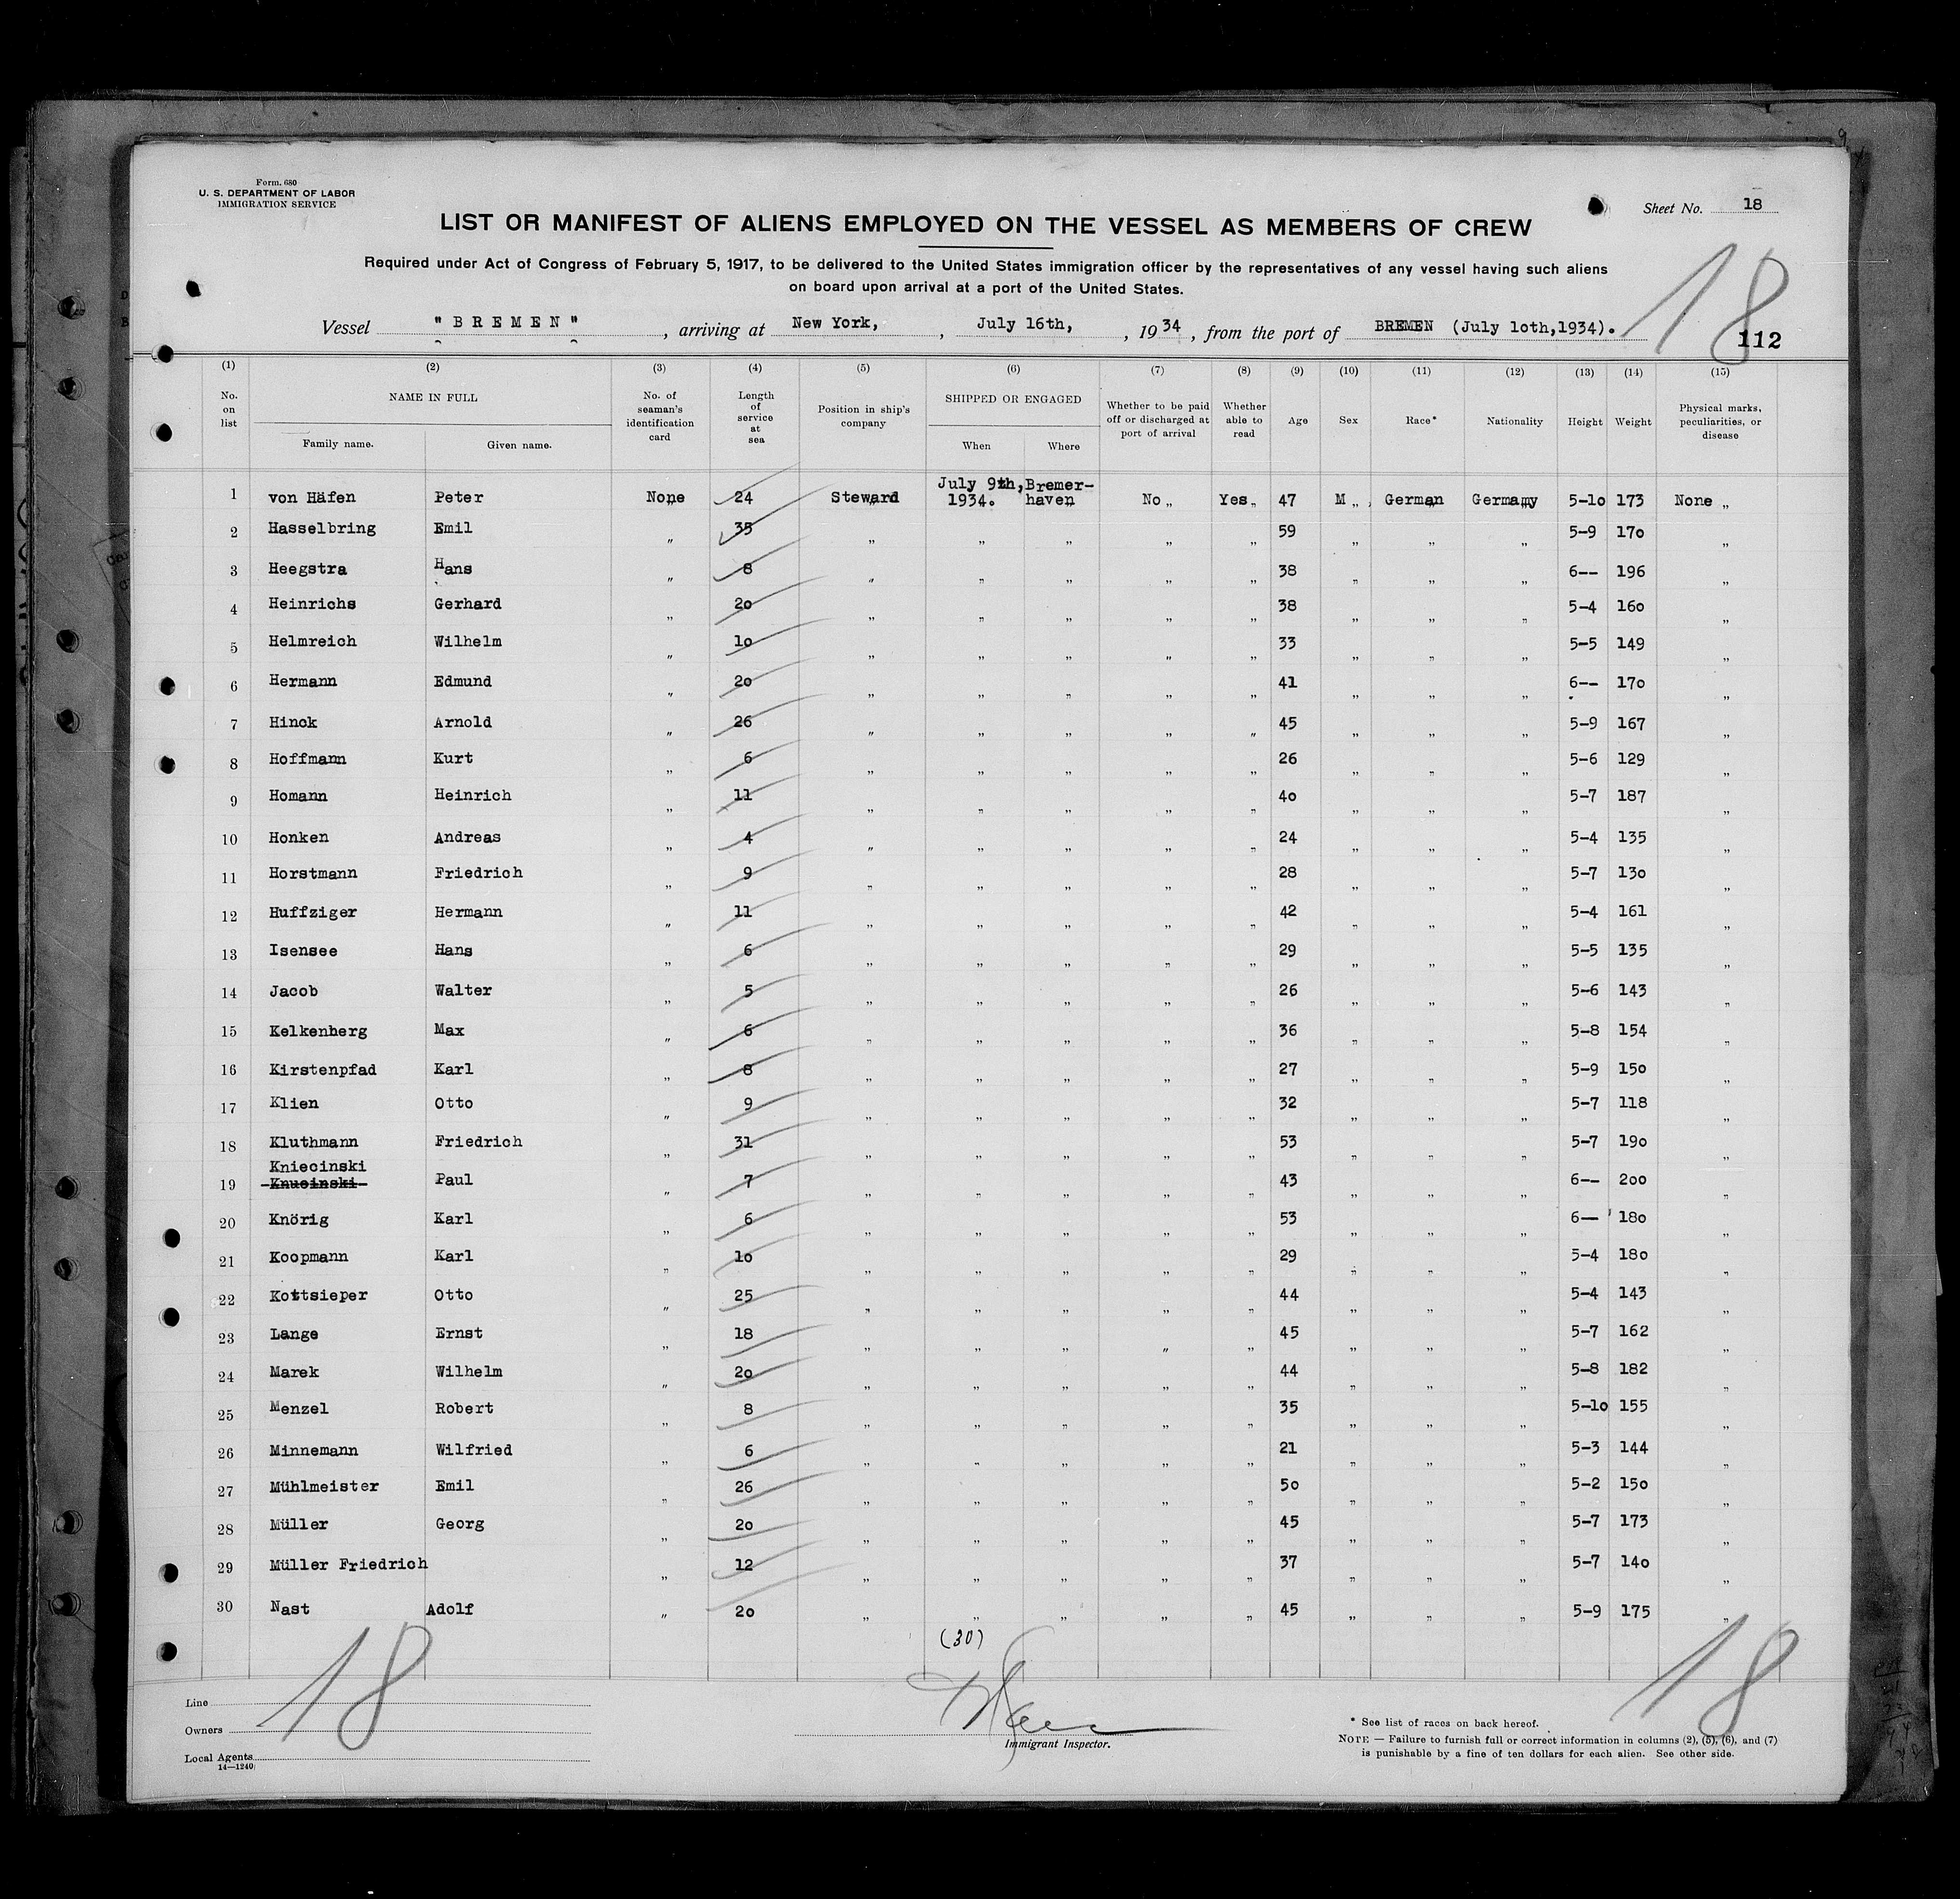 Form. 680
U. S. DEPARTMENT OF LABOR
IMMIGRATION SERVICE
Sheet No. 18
LIST OR MANIFEST OF ALIENS EMPLOYED ON THE VESSEL AS MEMBERS OF CREW
Required under Act of Congress of February 5, 1917, to be delivered to the United States immigration officer by the representatives of any vessel having such aliens
on board upon arrival at a port of the United States.
18
Vessel "BREMEN", arriving at New York, , July 16th, , 1934, from the port of BREMEN (July 10th,1934).
112
(1) (2) (3) (4) (5) (6) (7) (8) (9) (10) (11) (12) (13) (14) (15)
No. on list NAME IN FULL Family name. Given name. No. of seaman's identification card Length of service at sea Position in ship's company SHIPPED OR ENGAGED When Where Whether to be paid off or discharged at port of arrival Whether able to read Age Sex Race* Nationality Height Weight Physical marks, peculiarities, or disease
1 von Häfen Peter None 24 Steward July 9th, 1934. Bremer-haven No „ Yes„ 47 M „ German Germany 5-10 173 None „
2 Hasselbring Emil „ 35 „ „ „ „ „ 59 „ „ „ 5-9 170 „
3 Heegstra Hans „ 8 „ „ „ „ „ 38 „ „ „ 6-- 196 „
4 Heinrichs Gerhard „ 20 „ „ „ „ „ 38 „ „ „ 5-4 160 „
5 Helmreich Wilhelm „ 10 „ „ „ „ „ 33 „ „ „ 5-5 149 „
6 Hermann Edmund „ 20 „ „ „ „ „ 41 „ „ „ 6-- 170 „
7 Hinck Arnold „ 26 „ „ „ „ „ 45 „ „ „ 5-9 167 „
8 Hoffmann Kurt „ 6 „ „ „ „ „ 26 „ „ „ 5-6 129 „
9 Homann Heinrich „ 11 „ „ „ „ „ 40 „ „ „ 5-7 187 „
10 Honken Andreas „ 4 „ „ „ „ „ 24 „ „ „ 5-4 135 „
11 Horstmann Friedrich „ 9 „ „ „ „ „ 28 „ „ „ 5-7 130 „
12 Huffziger Hermann „ 11 „ „ „ „ „ 42 „ „ „ 5-4 161 „
13 Isensee Hans „ 6 „ „ „ „ „ 29 „ „ „ 5-5 135 „
14 Jacob Walter „ 5 „ „ „ „ „ 26 „ „ „ 5-6 143 „
15 Kelkenherg Max „ 6 „ „ „ „ „ 36 „ „ „ 5-8 154 „
16 Kirstenpfad Karl „ 8 „ „ „ „ „ 27 „ „ „ 5-9 150 „
17 Klien Otto „ 9 „ „ „ „ „ 32 „ „ „ 5-7 118 „
18 Kluthmann Friedrich „ 31 „ „ „ „ „ 53 „ „ „ 5-7 190 „
Kniecinski
19 Knucinski Paul „ 7 „ „ „ „ „ 43 „ „ „ 6-- 200 „
20 Knörig Karl „ 6 „ „ „ „ „ 53 „ „ „ 6-- 180 „
21 Koopmann Karl „ 10 „ „ „ „ „ 29 „ „ „ 5-4 180 „
22 Kottsieper Otto „ 25 „ „ „ „ „ 44 „ „ „ 5-4 143 „
23 Lange Ernst „ 18 „ „ „ „ „ 45 „ „ „ 5-7 162 „
24 Marek Wilhelm „ 20 „ „ „ „ „ 44 „ „ „ 5-8 182 „
25 Menzel Robert „ 8 „ „ „ „ „ 35 „ „ „ 5-10 155 „
26 Minnemann Wilfried „ 6 „ „ „ „ „ 21 „ „ „ 5-3 144 „
27 Mühlmeister Emil „ 26 „ „ „ „ „ 50 „ „ „ 5-2 150 „
28 Müller Georg „ 20 „ „ „ „ „ 45 „ „ „ 5-7 173 „
29 Müller Friedrich „ 12 „ „ „ „ „ 37 „ „ „ 5-7 140 „
30 Nast Adolf „ 20 „ „ „ „ „ 45 „ „ „ 5-9 175 „
(30)
18
18
Line
Owners
Local Agents
14—1240
Immigrant Inspector.
* See list of races on back hereof.
NOTE — Failure to furnish full or correct information in columns (2), (5), (6), and (7)
is punishable by a fine of ten dollars for each alien. See other side.